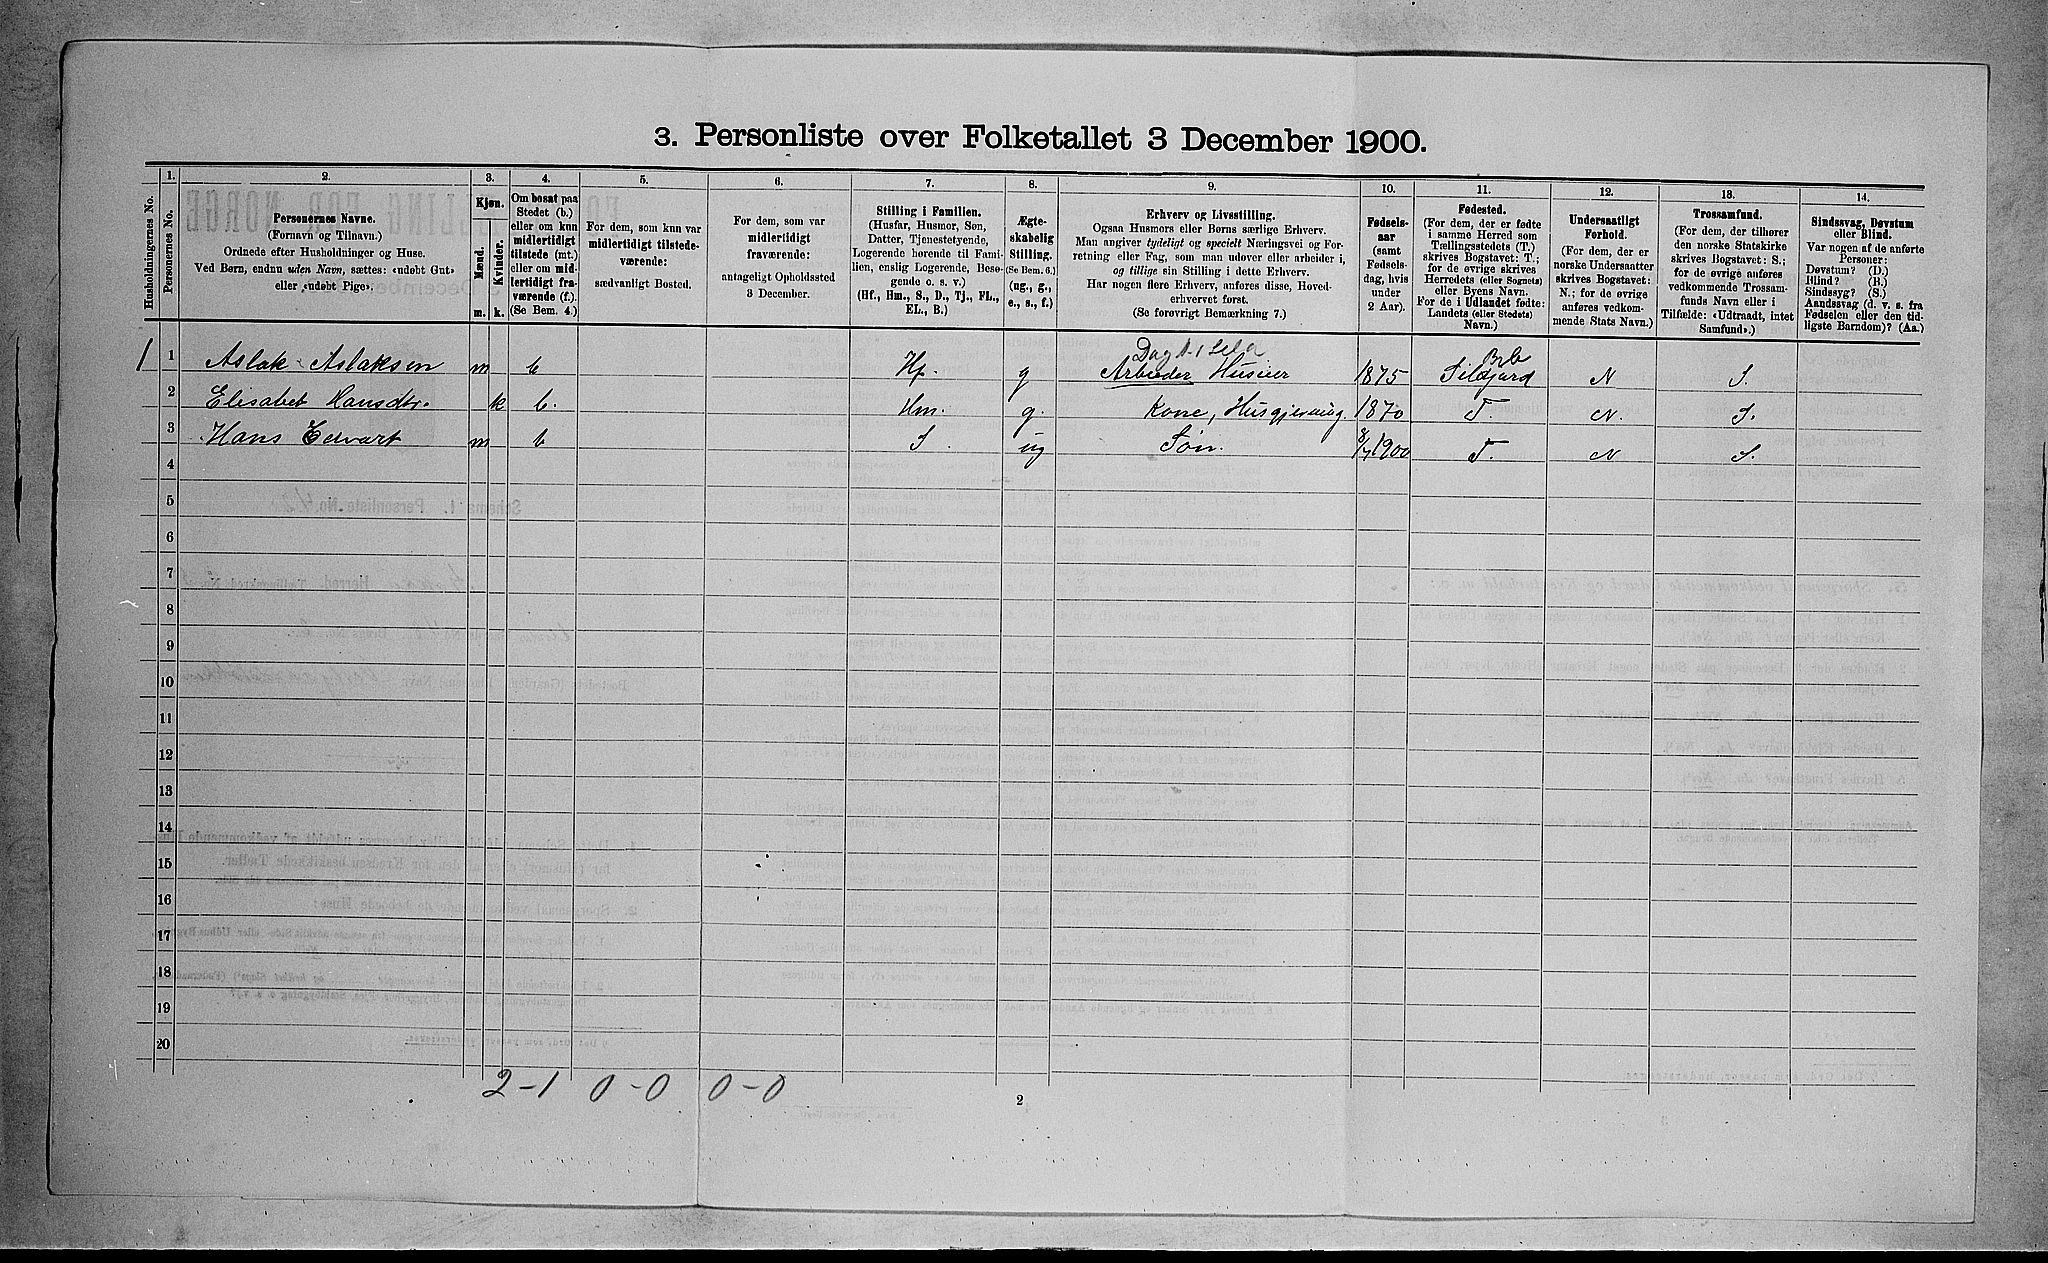 3. Personliste over Folketallet 3 December 1900.
Husholdningernes No.
1.
Personernes No.
2.
Personernes Navne.
(Fornavn og Tilnavn.)
Ordnede efter Husholdninger og Huse.
Ved Børn, endnu uden Navn, sættes: «udøbt Gut»
eller «udøbt Pige».
3.
Kjøn.
Mænd.
Kvinder.
m.
k.
4.
Om bosat paa
Stedet (b.)
eller om kun
midlertidigt
tilstede (mt.)
eller om mid-
lertidigt fra-
værende (f.).
(Se Bem. 4.)
5.
For dem, som kun var
midlertidigt tilstede-
værende:
sædvanligt Bosted.
6.
For dem, som var
midlertidigt
fraværende:
antageligt Opholdssted
3 December.
7.
Stilling i Familien.
(Husfar, Husmor, Søn,
Datter, Tjenestetyende,
Logerende hørende til Fami-
lien, enslig Logerende, Besø-
gende o. s. v.)
(Hf., Hm., S., D., Tj., FL.,
EL., B.)
8.
Ægte-
skabelig
Stilling.
(Se Bem. 6.)
(ug., g.,
e., s., f.)
9.
Erhverv og Livsstilling.
Ogsaa Husmors eller Børns særlige Erhverv.
Man angiver tydeligt og specielt Næringsvei og For-
retning eller Fag, som man udøver eller arbeider i,
og tillige sin Stilling i dette Erhverv.
Har nogen flere Erhverv, anføres disse, Hoved-
erhvervet først.
(Se forøvrigt Bemærkning 7.)
10.
Fødsels-
aar
(samt
Fødsels-
dag, hvis
under
2 Aar).
11.
Fødested.
(For dem, der er fødte
i samme Herred som
Tællingsstedets (T.)
skrives Bogstavet: T.;
for de øvrige skrives
Herredets (eller Sognets)
eller Byens Navn.
For de i Udlandet fødte:
Landets (eller Stedets)
Navn.)
12.
Undersaatligt
Forhold.
(For dem, der er
norske Undersaatter
skrives Bogstavet:
N.; for de øvrige
anføres vedkom-
mende Stats Navn.)
13.
Trossamfund.
(For dem, der tilhører
den norske Statskirke
skrives Bogstavet: S.;
for de øvrige anføres
vedkommende Trossam-
funds Navn eller i
Tilfælde: «Udtraadt, intet
Samfund».)
14.
Sindssvag, Døvstum
eller Blind.
Var nogen af de anførte
Personer:
Døvstum? (D.)
Blind? (B.)
Sindssyg? (S.)
Aandssvag (d. v. s. fra
Fødselen eller den tid-
ligste Barndom)? (Aa.)
Brb
1 1 Aslak Aslaksen m b Hf. g Arbeider Husier 1875 Sildjord N S.
2 Elisabet Hansdtr. k b. Hm. g. Kone, Husgjerning 1870 T. N. S.
3 Hans Edvart m b S. ug Søn. 8/7 1900 T. N S.
4
5
6
7
8
9
10
11
12
13
14
15
16
17
18
19
20
2-1 0-0 0-0
2